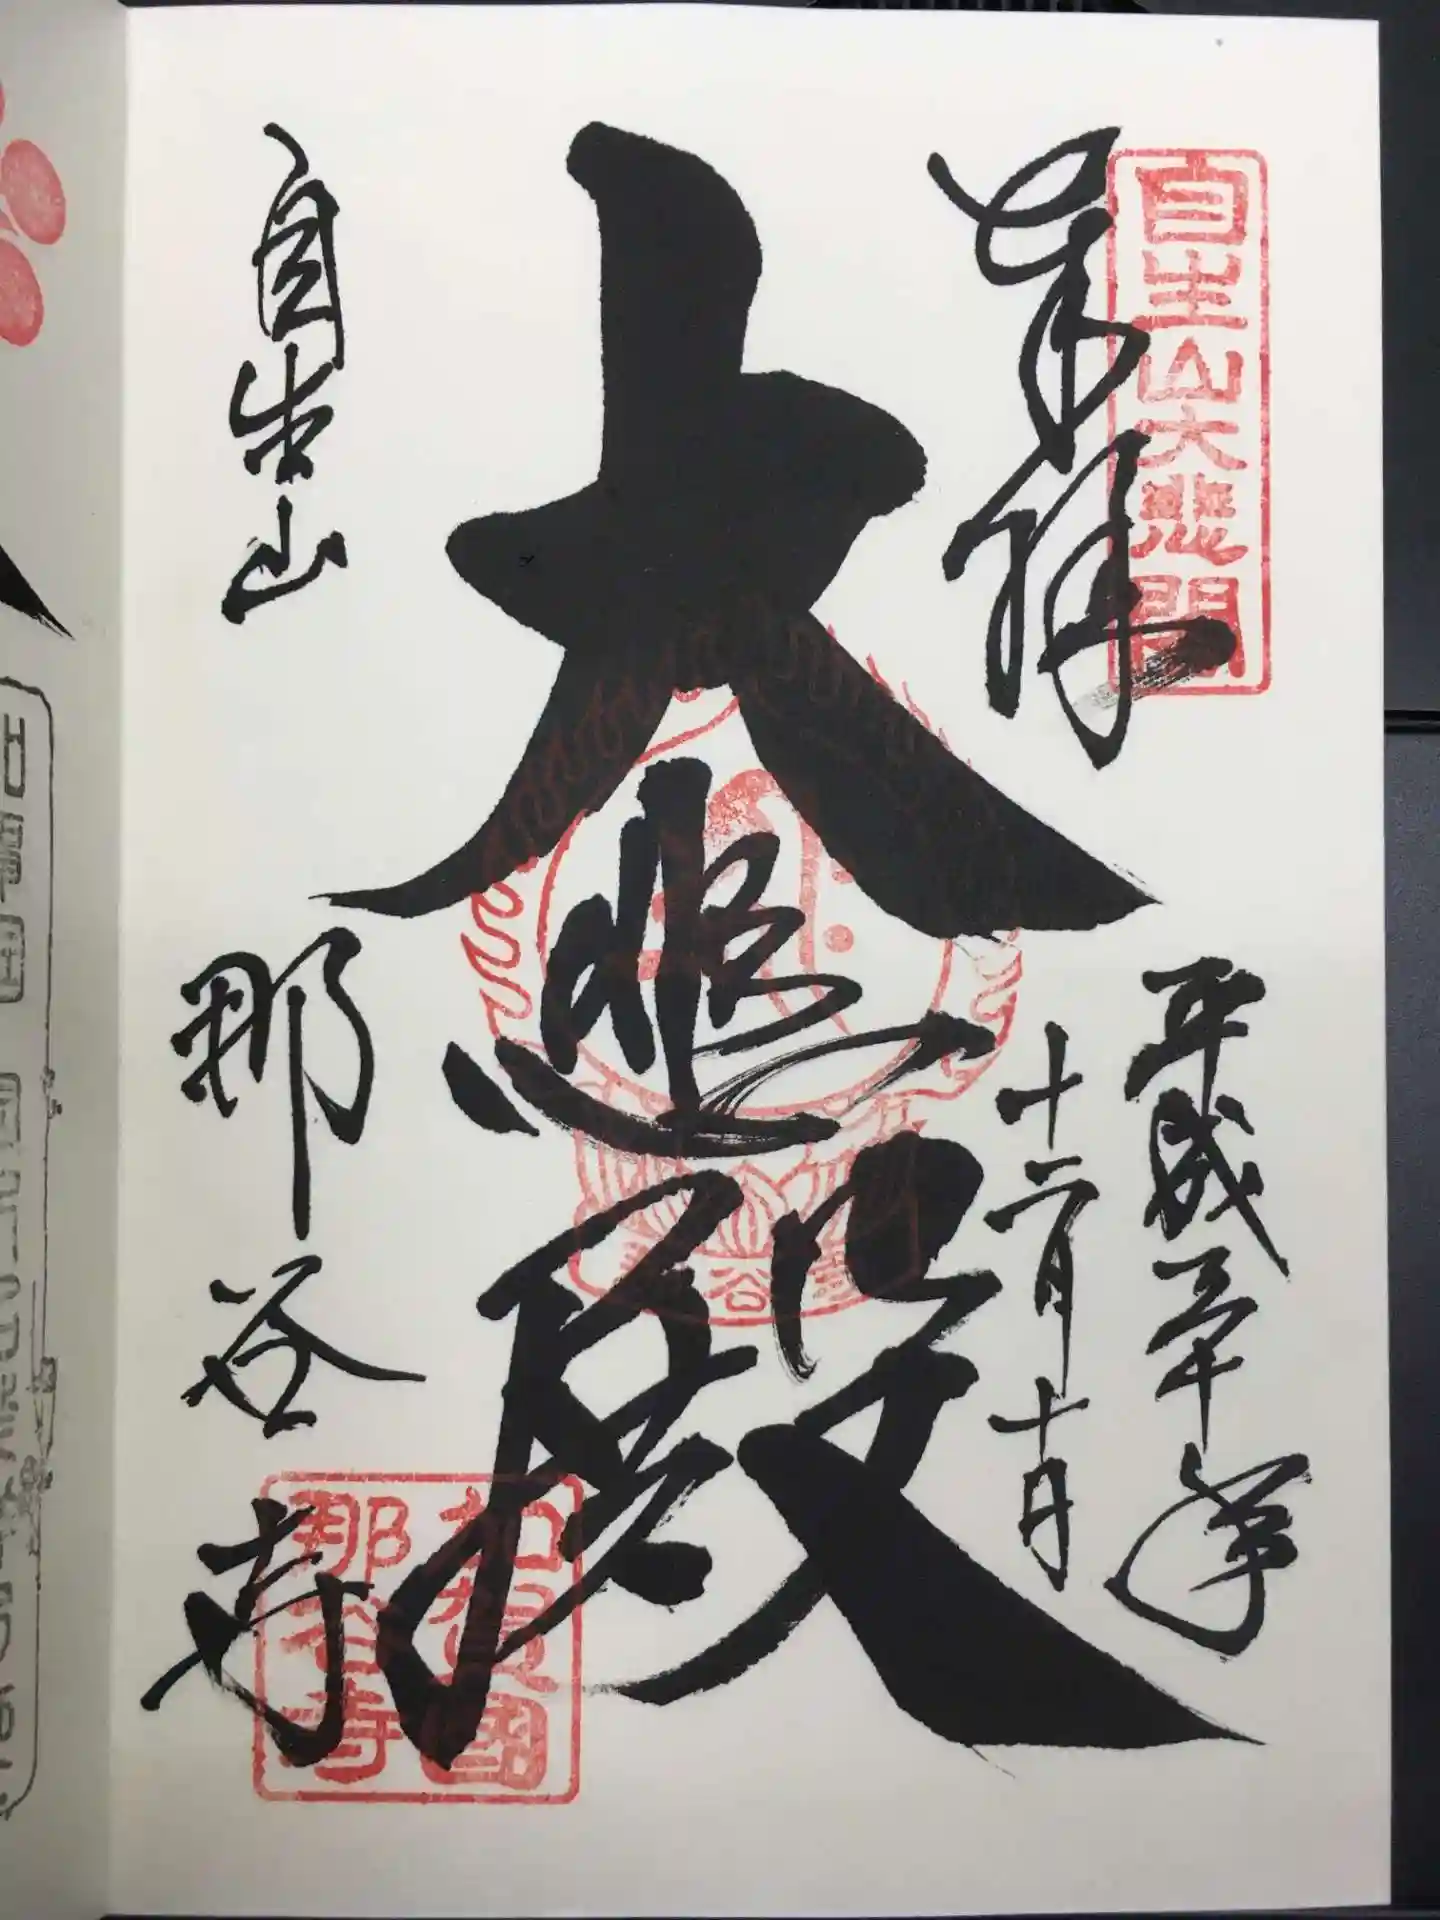 自生山大悲閣
奉拝
平成三十年
十二月十日
大悲殿
自生山
那谷寺
加賀國
那谷寺